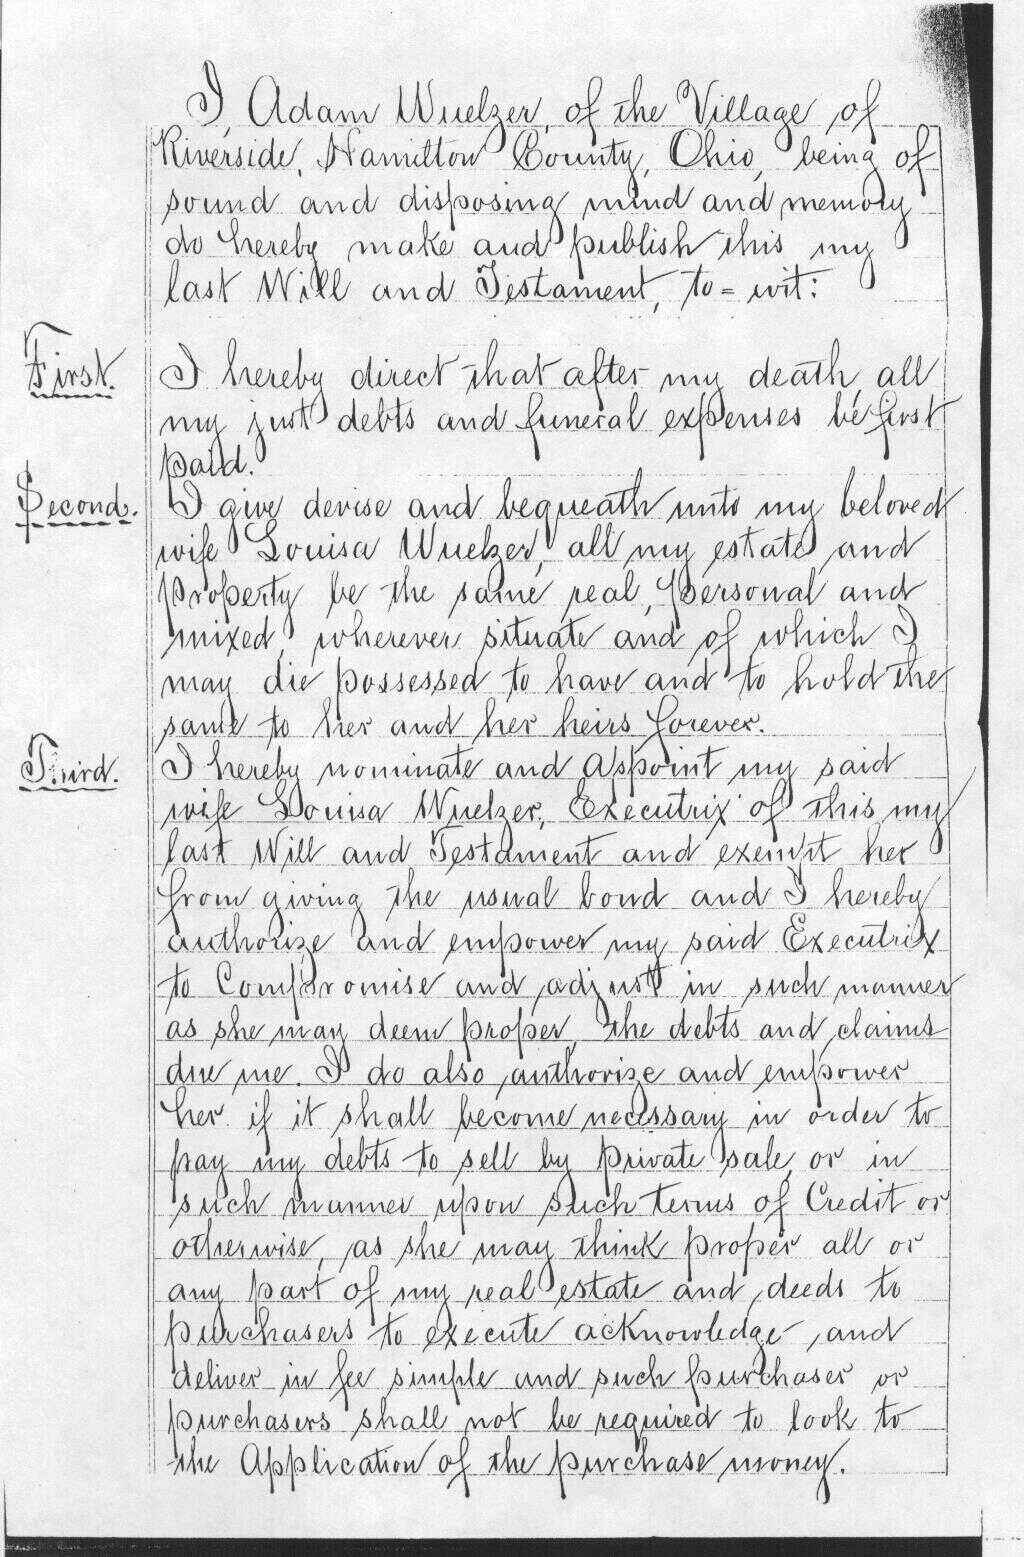 I, Adam Wuelzer, of the Village of
Riverside, Hamilton County, Ohio, being of
sound and disposing mind and memory
do hereby make and publish this my
last Will and Testament, to=wit:
First. I hereby direct that after my death, all
my just debts and funeral expenses be first
paid.
Second. I give devise and bequeath unto my beloved
wife Louisa Wuelzer, all my estate and
property be the same real, personal and
mixed, wherever situate and of which I
may die possessed to have and to hold the
same to her and her heirs forever.
Third. I hereby nominate and appoint my said
wife Louisa Wuelzer, Executrix of this my
last Will and Testament and exempt her
from giving the usual bond and I hereby
authorize and empower my said Executrix
to Compromise and adjust in such manner
as she may deem proper, the debts and claims
due me. I do also authorize and empower
her if it shall become necessary in order to
pay my debts to sell by private sale, or in
such manner upon such terms of Credit or
otherwise, as she may think proper all or
any part of my real estate and deeds to
purchasers to execute acknowledge and
deliver in fee simple and such purchaser or
purchasers shall not be required to look to
the Application of the purchase money.